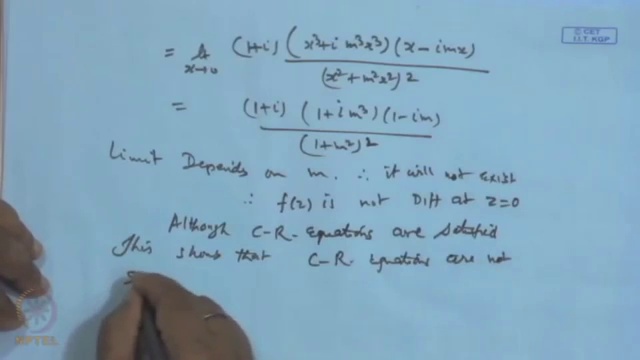 © CET
I.I.T. KGP
= lt x→0 (1+i) (x³+i m³x³) (x-imx) / (x²+m²x²)²
= (1+i) (1+i m³) (1-im) / (1+m²)²
Limit Depends on m. ∴ it will not exist
∴ f(z) is not Diff at z=0
Although C-R. Equations are satisfied
This shows that C-R. Equations are not
S
NPTEL